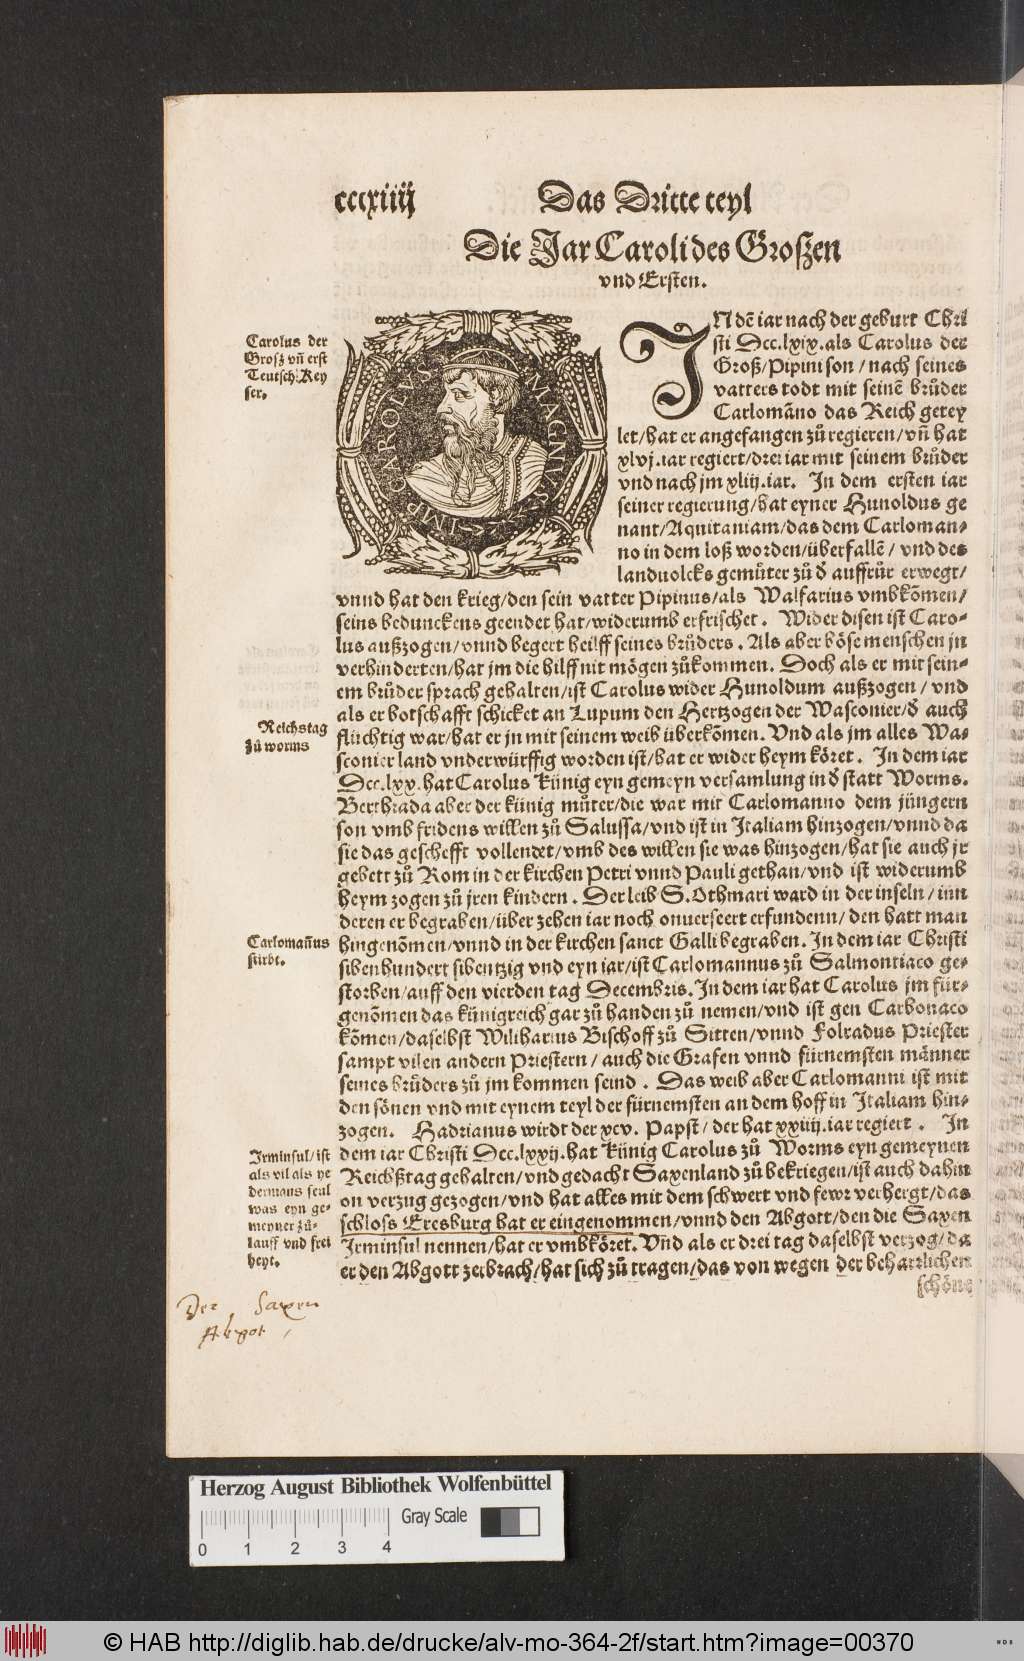 cccxiiij
Das Dritte teyl
Die Jar Caroli des Groſzen
vnd Erſten.
Carolus der
Groſz vñ erſt
Teutſch Key
ſer.
IMP CAROLVS MAGNVS
IN dē iar nach der geburt Chri
ſti Dcc.lxix.als Carolus der
Groß/Pipini ſon/nach ſeines
vatters todt mit ſeinē brůder
Carlomāno das Reich getey
let/hat er angefangen zů regieren/vñ hat
xlvj.iar regiert/drei iar mit ſeinem brůder
vnd nach jm xliij.iar. In dem erſten iar
ſeiner regierung/hat eyner Hunoldus ge
nant/Aquitaniam/das dem Carloman⸗
no in dem loß worden/überfallē/vnd des
landuolcks gemůter zů ð auffrůr erwegt/
vnnd hat den krieg/den ſein vatter Pipinus/als Walfarius vmbkōmen/
ſeins beduncкens geendet hat/widerumb erfriſchet. Wider diſen iſt Caro⸗
lus außzogen/vnnd begert heilff ſeines brůders. Als aber böſe menſchen jn
verhinderten/hat jm die hilff nit mögen zůkommen. Doch als er mit ſein⸗
em brůder ſprach gehalten/iſt Carolus wider Hunoldum außzogen/vnd
als er botſchafft ſchicket an Lupum den Hertzogen der Waſconier/ð auch
Reichstag
zů worms
flüchtig war/hat er jn mit ſeinem weib überkōmen. Vnd als jm alles Wa⸗
ſconier land vnderwürffig worden iſt/hat er wider heym kört. In dem iar
Dcc.lxx.hat Carolus künig eyn gemeyn verſamlung in ð ſtatt Worms.
Berthrada aber der künig můter/die war mit Carlomanno dem jüngern
ſon vmb fridens willen zů Saluſſa/vnd iſt in Italiam hinzogen/vnnd da
ſie das geſchefft vollendet/vmb des willen ſie was hinzogen/hat ſie auch jr
gebett zů Rom in der kirchen Petri vnnd Pauli gethan/vnd iſt widerumb
heym zogen zů jren kindern. Der leib S.Othmari ward in der inſeln/inn
deren er begraben/über zehen iar noch onuerſeert erfundenn/den hatt man
Carlomañus
ſtirbt.
hingenōmen/vnnd in der kirchen ſanct Galli begraben. In dem iar Chriſti
ſibenhundert ſibentzig vnd eyn iar/iſt Carlomannus zů Salmontiaco ge⸗
ſtorben/auff den vierden tag Decembris. In dem iar hat Carolus jm für⸗
genōmen das künigreich gar zů handen zů nemen/vnd iſt gen Carbonaco
kōmen/daſelbſt Wiliharius Biſchoff zů Sitten/vnnd Folradus Prieſter
ſampt vilen andern Prieſtern/auch die Grafen vnnd fürnemſten männer
ſeines brůders zů jm kommen ſeind. Das weib aber Carlomanni iſt mit
den ſönen vnd mit eynem teyl der fürnemſten an dem hoff in Italiam hin⸗
zogen. Hadrianus wirdt der xcv. Papſt/der hat xxiiij.iar regiert. In
Irminſul/iſt
als vil als ye
dermans ſeul
was eyn ge⸗
meyner zů⸗
lauff vnd frei
heyt.
dem iar Chriſti Dcc.lxxij.hat künig Carolus zů Worms eyn gemeynen
Reichßtag gehalten/vnd gedacht Saxenland zů bekriegen/iſt auch dahin
on verzug gezogen/vnd hat alles mit dem ſchwert vnd fewr verhergt/das
ſchloſs Eresburg hat er eingenommen/vnnd den Abgott/den die Saxen
Irminſul nennen/hat er vmbkört. Vnd als er drei tag daſelbſt verzog/da
er den Abgott zerbrach/hat ſich zů tragen/das von wegen der beharrlichen
ſchöne
Der Saxen
Abgot
Herzog August Bibliothek Wolfenbüttel
Gray Scale
0 1 2 3 4
© HAB http://diglib.hab.de/drucke/alv-mo-364-2f/start.htm?image=00370